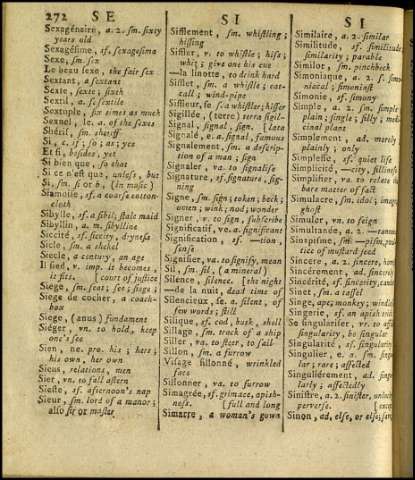 272 S E
S I
S I
Sexagénaire, a. 2. sm. sixty
years old
Sexagésime, sf. sexagesima
Sexe, sm. sex
Le beau sexe, the fair sex
Sextant, a sextant
Sexte, sexte, sixth
Sextil, a. f. sextile
Sextuple, six times as much
Sexuel, le, a. of the sexes
Shérif, sm. sheriff
Si, c. if; so; as; yes
Et si, besides, yet
Si bien que, so that
Si ce n'est que, unless, but
Si, sm. si or b, (in music)
Siamoise, sf. a coarse cotton-
cloth
Sibylle, sf. a sibil, stale maid
Sibyllin, a. m. sibylline
Siccité, sf. siccity, dryness
Sicle, sm. a shekel
Siecle, a century, an age
Il sied, v. imp. it becomes,
it fits. [court of justice
Siege, sm. seat; see; siege;
Siege de cocher, a coach-
box
Siege, (anus) fundament
Siéger, vn. to hold, keep
one's see
Sien, ne. pro. his; hers;
his own, her own
Siens, relations, men
Sier, vn. to fall astern
Sieste, sf. afternoon's nap
Sieur, sm. lord of a manor;
also sir or master
Sifflement, sm. whistling;
hissing
Siffler, v. to whistle; hiss;
whiz; give one his cue
—la linotte, to drink hard
Sifflet, sm. a whistle; cat-
call; wind-pipe
Siffleur, se. s. a whistler; hisser
Sigillée, (terre) terra sigil-
Signal, signal, sign. [lata
Signalé, e. a. signal, famous
Signalement, sm. a descrip-
tion of a man; sign
Signaler, va. to signalise
Signature, sf. signature, sign-
ing
Signe, sm. sign; token; beck;
omen; wink; nod; wonder
Signer, v. to sign, subscribe
Significatif, ve. a. significant
Signification, sf. —tion,
sense
Signifier, va. to signify, mean
Sil, sm. sil, (a mineral)
Silence, silence. [the night
—de la nuit, dead time of
Silencieux, se. a. silent, of
few words; still
Silique, sf. cod, husk, shell
Sillage, sm. track of a ship
Siller, va. to steer, to sail
Sillon, sm. a furrow
Visage sillonné, wrinkled
face
Sillonner, va. to furrow
Simagrée, sf. grimace, apish-
ness. [full and long
Simarre, a woman's gown
Similaire, a. 2. similar
Similitude, sf. similitude,
similarity; parable
Similor, sm. pinchbeck
Simoniaque, a. 2. s. simo-
niacal; simonist
Simonie, sf. simony
Simple, a. 2. sm. simple
plain; single; silly; medi-
cinal plant
Simplement, ad. merely
plainly; only
Simplesse, sf. quiet life
Simplicité, —city, silliness
Simplifier, va. to relate the
bare matter of fact
Simulacre, sm. idol; image
ghost
Simuler, vn. to feign
Simultanée, a. 2.
Sinapisme, sm.
tice of mustard seed
Sincere, a. 2. sincere,
Sincérement, ad. sincerely
Sincérité, sf. sincerity,
Sinet, sm. a tassel
Singe, ape; monkey;
Singerie, sf. an apish
Se singulariser, vr. to
singularity, be singular
Singularité, sf. singularity
Singulier, e. a. sm. singu-
lar; rare; affected
Singuliérement, ad. singu-
larly; affectedly
Sinistre, a. 2. sinister, unlucky
perverse.
Sinon, ad. else, or else;